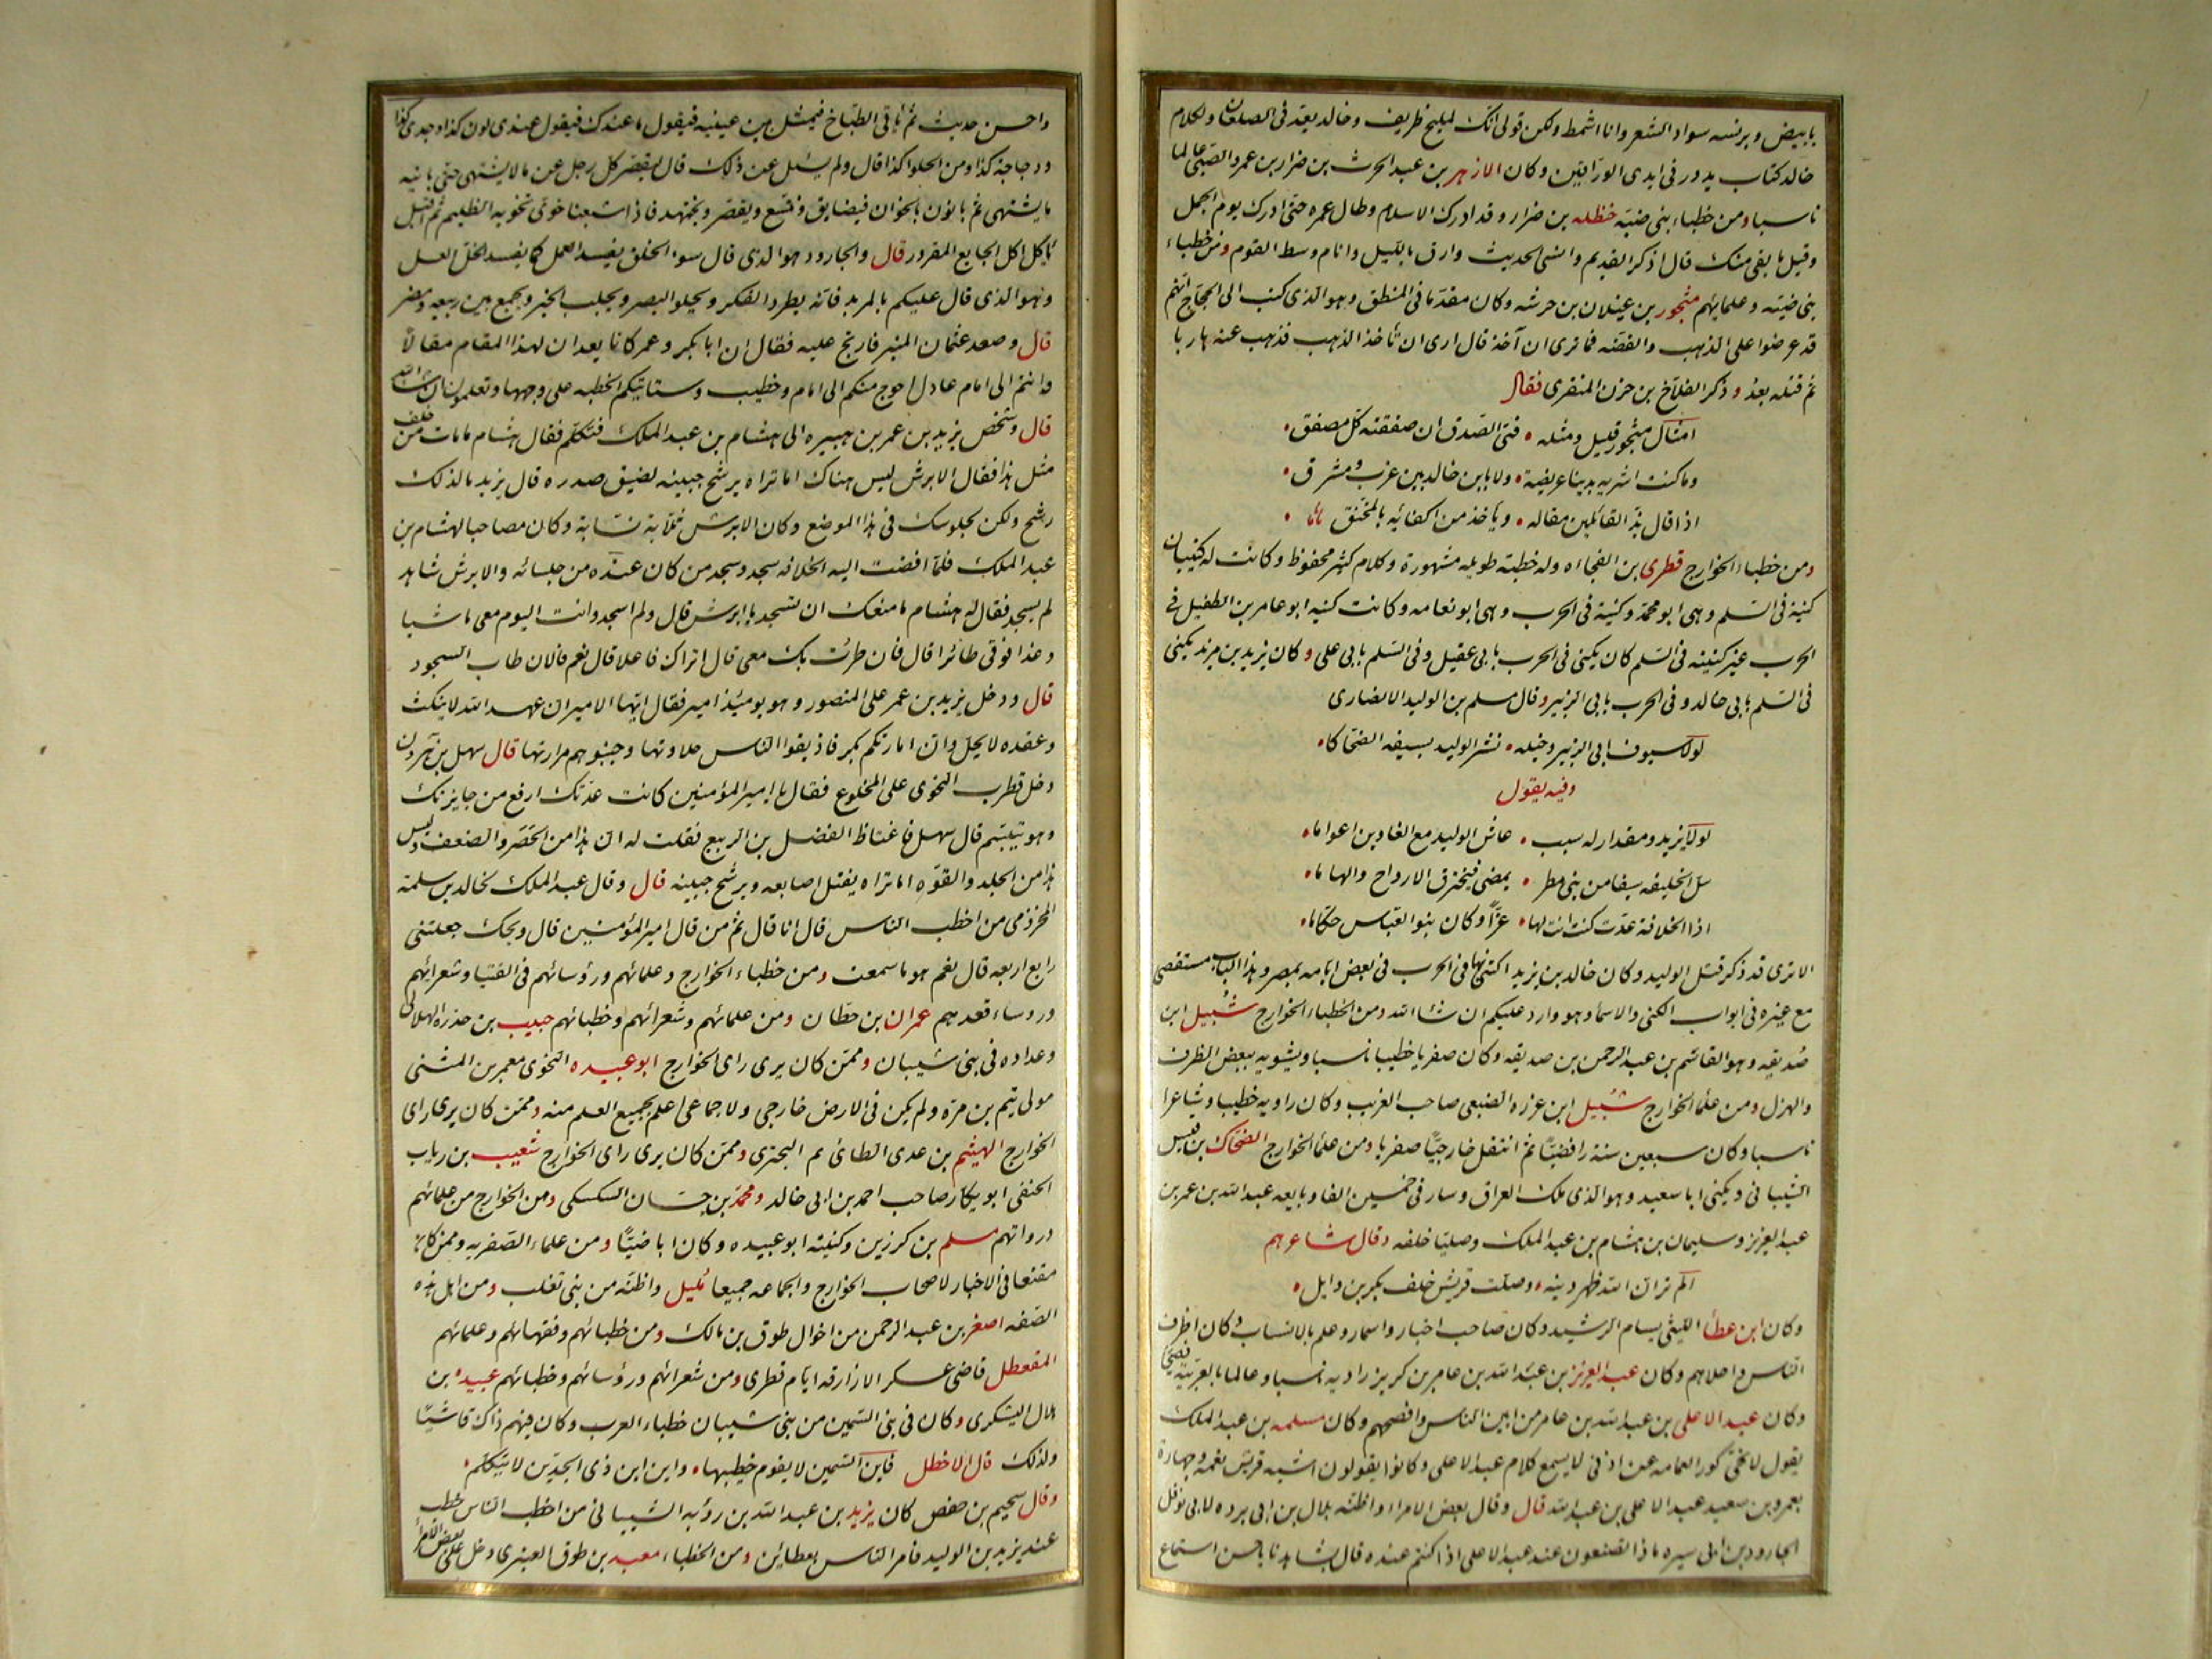 بابيض وبرنسه سواد الشعر وانا اشمط ولكن قولى انك لمليح ظريف وخالد يعد فى الصلعان ولكلام
خالد كتاب يدور فى ايدى الوراقين وكان الازهر بن عبد الحرث بن ضرار بن عمرو الضبى عالما
ناسبا ومن خطباء بنى ضبة حنظله بن ضرار وقد ادرك الاسلام وطال عمره حتى ادرك يوم الجمل
وقيل ما بقى منك قال اذكر القديم وانسى الحديث وارق بالليل وانام وسط القوم ومن خطباء
بنى ضبه وعلمائهم مثجور بن غيلان بن خرشه وكان مقدما فى المنطق وهو الذى كتب الى الحجاج انهم
قد عرضوا على الذهب والفضه فما ترى ان آخذ قال ارى ان تأخذ الذهب فذهب عنه هاربا
ثم قتله بعد وذكر القلاخ بن حزن المنقرى فقال
امثال مثجور قليل ومثله • فتى الصدق ان صفقته كل مصفق •
وما كنت اشريه بدينا عريضة • ولا بابن خال بين غرب ومشرق •
اذا قال بذ القائلين مقاله • ويأخذ من اكفائه بالمخنق •
ومن خطباء الخوارج قطرى بن الفجاءه وله خطبة طويله مشهورة وكلام كثير محفوظ وكانت له كنيتان
كنية فى السلم وهى ابو محمد وكنية فى الحرب وهى ابو نعامه وكانت كنيه ابو عامر بن الطفيل فى
الحرب غير كنيته فى السلم كان يكنى فى الحرب بابى عقيل وفى السلم بابى على وكان يزيد بن مزيد يكنى
فى السلم بابى خالد وفى الحرب بابى الزبير وقال مسلم بن الوليد الانصارى
لولا سيوف ابى الزبير وخيله • نشر الوليد بسيفه الضحاكا •
وفيه يقول
لولا يزيد ومقدار له سبب • عاش الوليد مع الغاوين اعواما •
سل الخليفه سيفا من بنى مطر • يمضى فيخترق الارواح والهاما •
اذا الخلافة عدت كنت انت لها • عزا وكان بنو العباس حكاما •
الا ترى قد ذكر قتل الوليد وكان خالد بن يزيد اكتنى بها فى الحرب فى بعض ايامه بمصر وهذا الباب مستقصى
مع غيره فى ابواب الكنى والاسماء وهو وارد عليكم ان شاء الله ومن الخطباء الخوارج شبيل ابن
صديقه وهو القاسم بن عبد الرحمن بن صديقه وكان صفريا خطيبا ناسبا ويشوبه ببعض الظرف
والهزل ومن علماء الخوارج شبيل ابن عزره الضبعى صاحب الغريب وكان راويه خطيبا وشاعرا
ناسبا وكان سبعين سنة رافضيا ثم انتقل خارجيا صفريا ومن علماء الخوارج الضحاك بن قيس
الشيبانى ويكنى ابا سعيد وهو الذى ملك العراق وسار فى خمسين الفا وبايعه عبد الله بن عمر بن
عبد العزيز وسليمان بن هشام بن عبد الملك وصليا خلفه وقال شاعرهم
الم تر ان الله اظهر دينه • وصلت قريش خلف بكر بن وايل •
وكان ابن عطاء الليثى يسامر الرشيد وكان صاحب اخبار واسمار وعلم بالانساب وكان اظرف
الناس واحلاهم وكان عبد العزيز بن عبد الله بن عامر بن كريز راويه ناسبا وعالما بالعربية فصيحا
وكان عبد الاعلى بن عبد الله بن عامر من ابين الناس وافصحهم وكان مسلمه بن عبد الملك
يقول لانحى كور العمامه عن اذنى لاسمع كلام عبد الاعلى وكانوا يقولون اشبه قريش نغمه وجهارة
بعمرو بن سعيد عبد الاعلى بن عبد الله قال وقال بعض الامراء واظنه بلال بن ابى برده لابى نوفل
الجارود بن ابى سبره ماذا تصنعون عند عبد الاعلى اذا كنتم عنده قال يشاهدنا باحسن استماع
واحسن حديث ثم يأتى الطباخ فيمثل بين عينيه فيقول ما عندك فيقول عندى لون كذا وجدى كذا
ودجاجة كذا ومن الحلوا كذا قال ولم يسئل عن ذلك قال ليقصر كل رجل عن ما لا يشتهى حتى يأتيه
ما يشتهى ثم يأتون بالخوان فيتضايق ونتسع ويقصر ونجتهد فاذا شبعنا خوى تخويه الظليم ثم اقبل
يأكل اكل الجايع المقرور قال والجارود هو الذى قال سوء الخلق يفسد العمل كما يفسد الخل العسل
وهو الذى قال عليكم بالمربد فانه يطرد الفكر ويجلو البصر ويجلب الخبر ويجمع بين ربيعه ومضر
قال وصعد عثمان المنبر فارتج عليه فقال ان ابا بكر وعمر كانا يعدان لهذا المقام مقالا
وانتم الى امام عادل احوج منكم الى امام خطيب وستأتيكم الخطبه على وجهها وتعلمون ان شاء الله
قال وشخص يزيد بن عمر بن هبيره الى هشام بن عبد الملك فتكلم فقال هشام ما مات من خلف
مثل هذا فقال الابرش ليس هناك اما تراه يرشح جبينه لضيق صدره قال يزيد ما لذلك
رشح ولكن لجلوسك فى هذا الموضع وكان الابرش ثلابة نسابة وكان مصاحبا لهشام بن
عبد الملك فلما افضت اليه الخلافه سجد وسجد من كان عنده من جلسائه والابرش شاهد
لم يسجد فقال له هشام ما منعك ان تسجد يا ابرش قال ولم اسجد وانت اليوم معى ماشيا
وغدا فوقى طائرا قال فان طرت بك معى قال اتراك فاعلا قال نعم قال فالان طاب السجود
قال ودخل يزيد بن عمر على المنصور وهو يومئذ امير فقال ايها الامير ان عهد الله لا ينكث
وعقده لا يحل وان امارتكم بكر فاذيقوا الناس حلاوتها وجنبوهم مرارتها قال سهل بن هرون
دخل قطرب النحوى على المخلوع فقال يا امير المؤمنين كانت عدتك ارفع من جايزتك
وهو يتبسم قال سهل فاغتاظ الفضل بن الربيع فقلت له ان هذا من الحصر والضعف وليس
هذا من الجلد والقوه اما تراه يفتل اصابعه ويرشح جبينه قال وقال عبد الملك لخالد بن سلمة
المخزومى من اخطب الناس قال انا قال ثم من قال امير المؤمنين قال ويحك جعلتنى
رابع اربعه قال نعم هو ما سمعت ومن خطباء الخوارج وعلمائهم ورؤسائهم فى الفتيا وشعرائهم
وروساء قعدهم عمران بن حطان ومن علمائهم وشعرائهم وخطبائهم حبيب بن خدره الهلالى
وعداده فى بنى شيبان وممن كان يرى راى الخوارج ابو عبيده النحوى معمر بن المثنى
مولى تيم بن مره ولم يكن فى الارض خارجى ولا جماعى اعلم بجميع العلم منه وممن كان يرى راى
الخوارج الهيثم بن عدى الطائى ثم البحترى وممن كان يرى راى الخوارج شعيب بن رباب
الحنفى ابو بكار صاحب احمد بن ابى خالد ومحمد بن حسان السكسكى ومن الخوارج من علمائهم
ورواتهم مسلم بن كرزين وكنيته ابو عبيده وكان اباضيا ومن علماء الصفريه وممن كان
مقنعا فى الاخبار لاصحاب الخوارج والجماعه جميعا مليل واظنه من بنى تغلب ومن اهل هذه
الصفه اصغر بن عبد الرحمن من اخوال طوق بن مالك ومن خطبائهم وفقهائهم وعلمائهم
المقعطل قاضى عسكر الازارقه ايام قطرى ومن شعرائهم ورؤسائهم وخطبائهم عبيده بن
هلال اليشكرى وكان فى بنى السمين من بنى شيبان خطباء العرب وكان فيهم ذاك فاشيا
ولذلك قال الاخطل فاين السمين لا يقوم خطيبها • واين ابن ذى الجدين لا يتكلم •
وقال سحيم بن حفص كان يزيد بن عبد الله بن رؤيه الشيبانى من اخطب الناس خطب
عند يزيد بن الوليد فامر الناس بعطائين ومن الخطباء معبد بن طوق العنبرى دخل على بعض الامراء